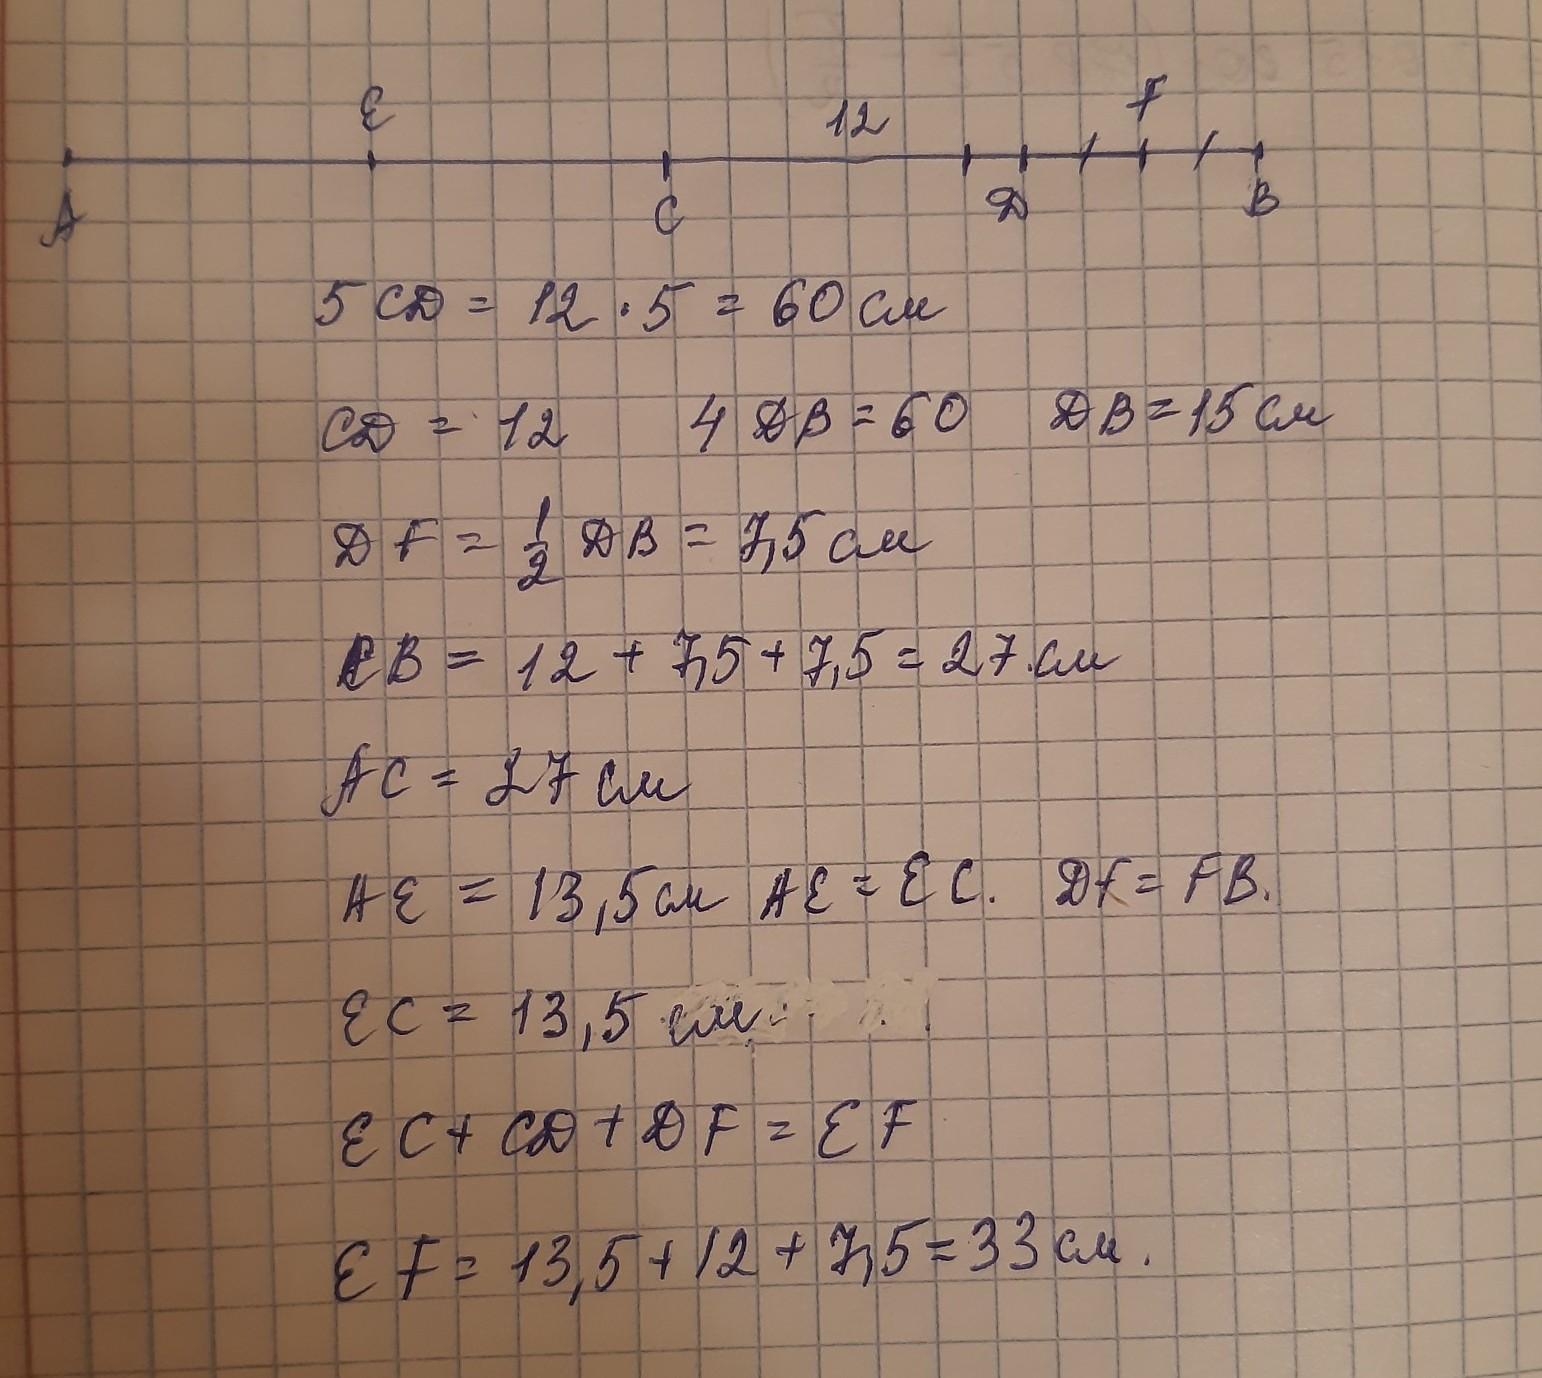 E 12 F
A C D B
5 CD = 12 · 5 = 60 см
CD = 12 4 DB = 60 DB = 15 см
DF = 1/2 DB = 7,5 см
CB = 12 + 7,5 + 7,5 = 27 см
AC = 27 см
AE = 13,5 см AE = EC. DF = FB.
EC = 13,5 см.
EC + CD + DF = EF
EF = 13,5 + 12 + 7,5 = 33 см.